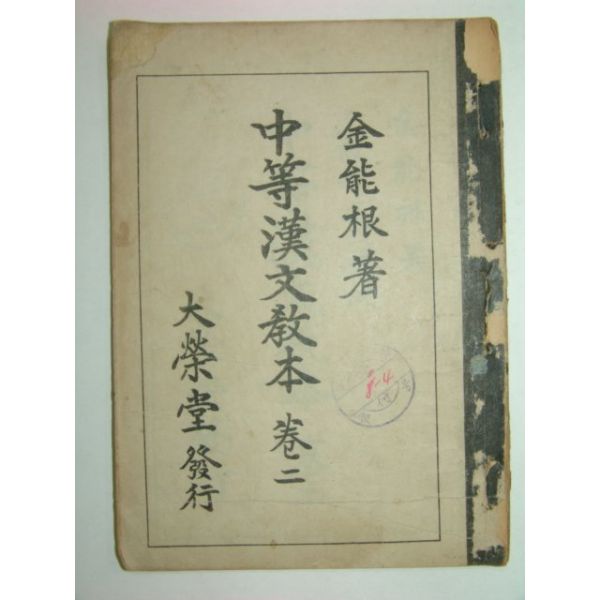 金能根著
中等漢文教本 卷二
大榮堂 發行